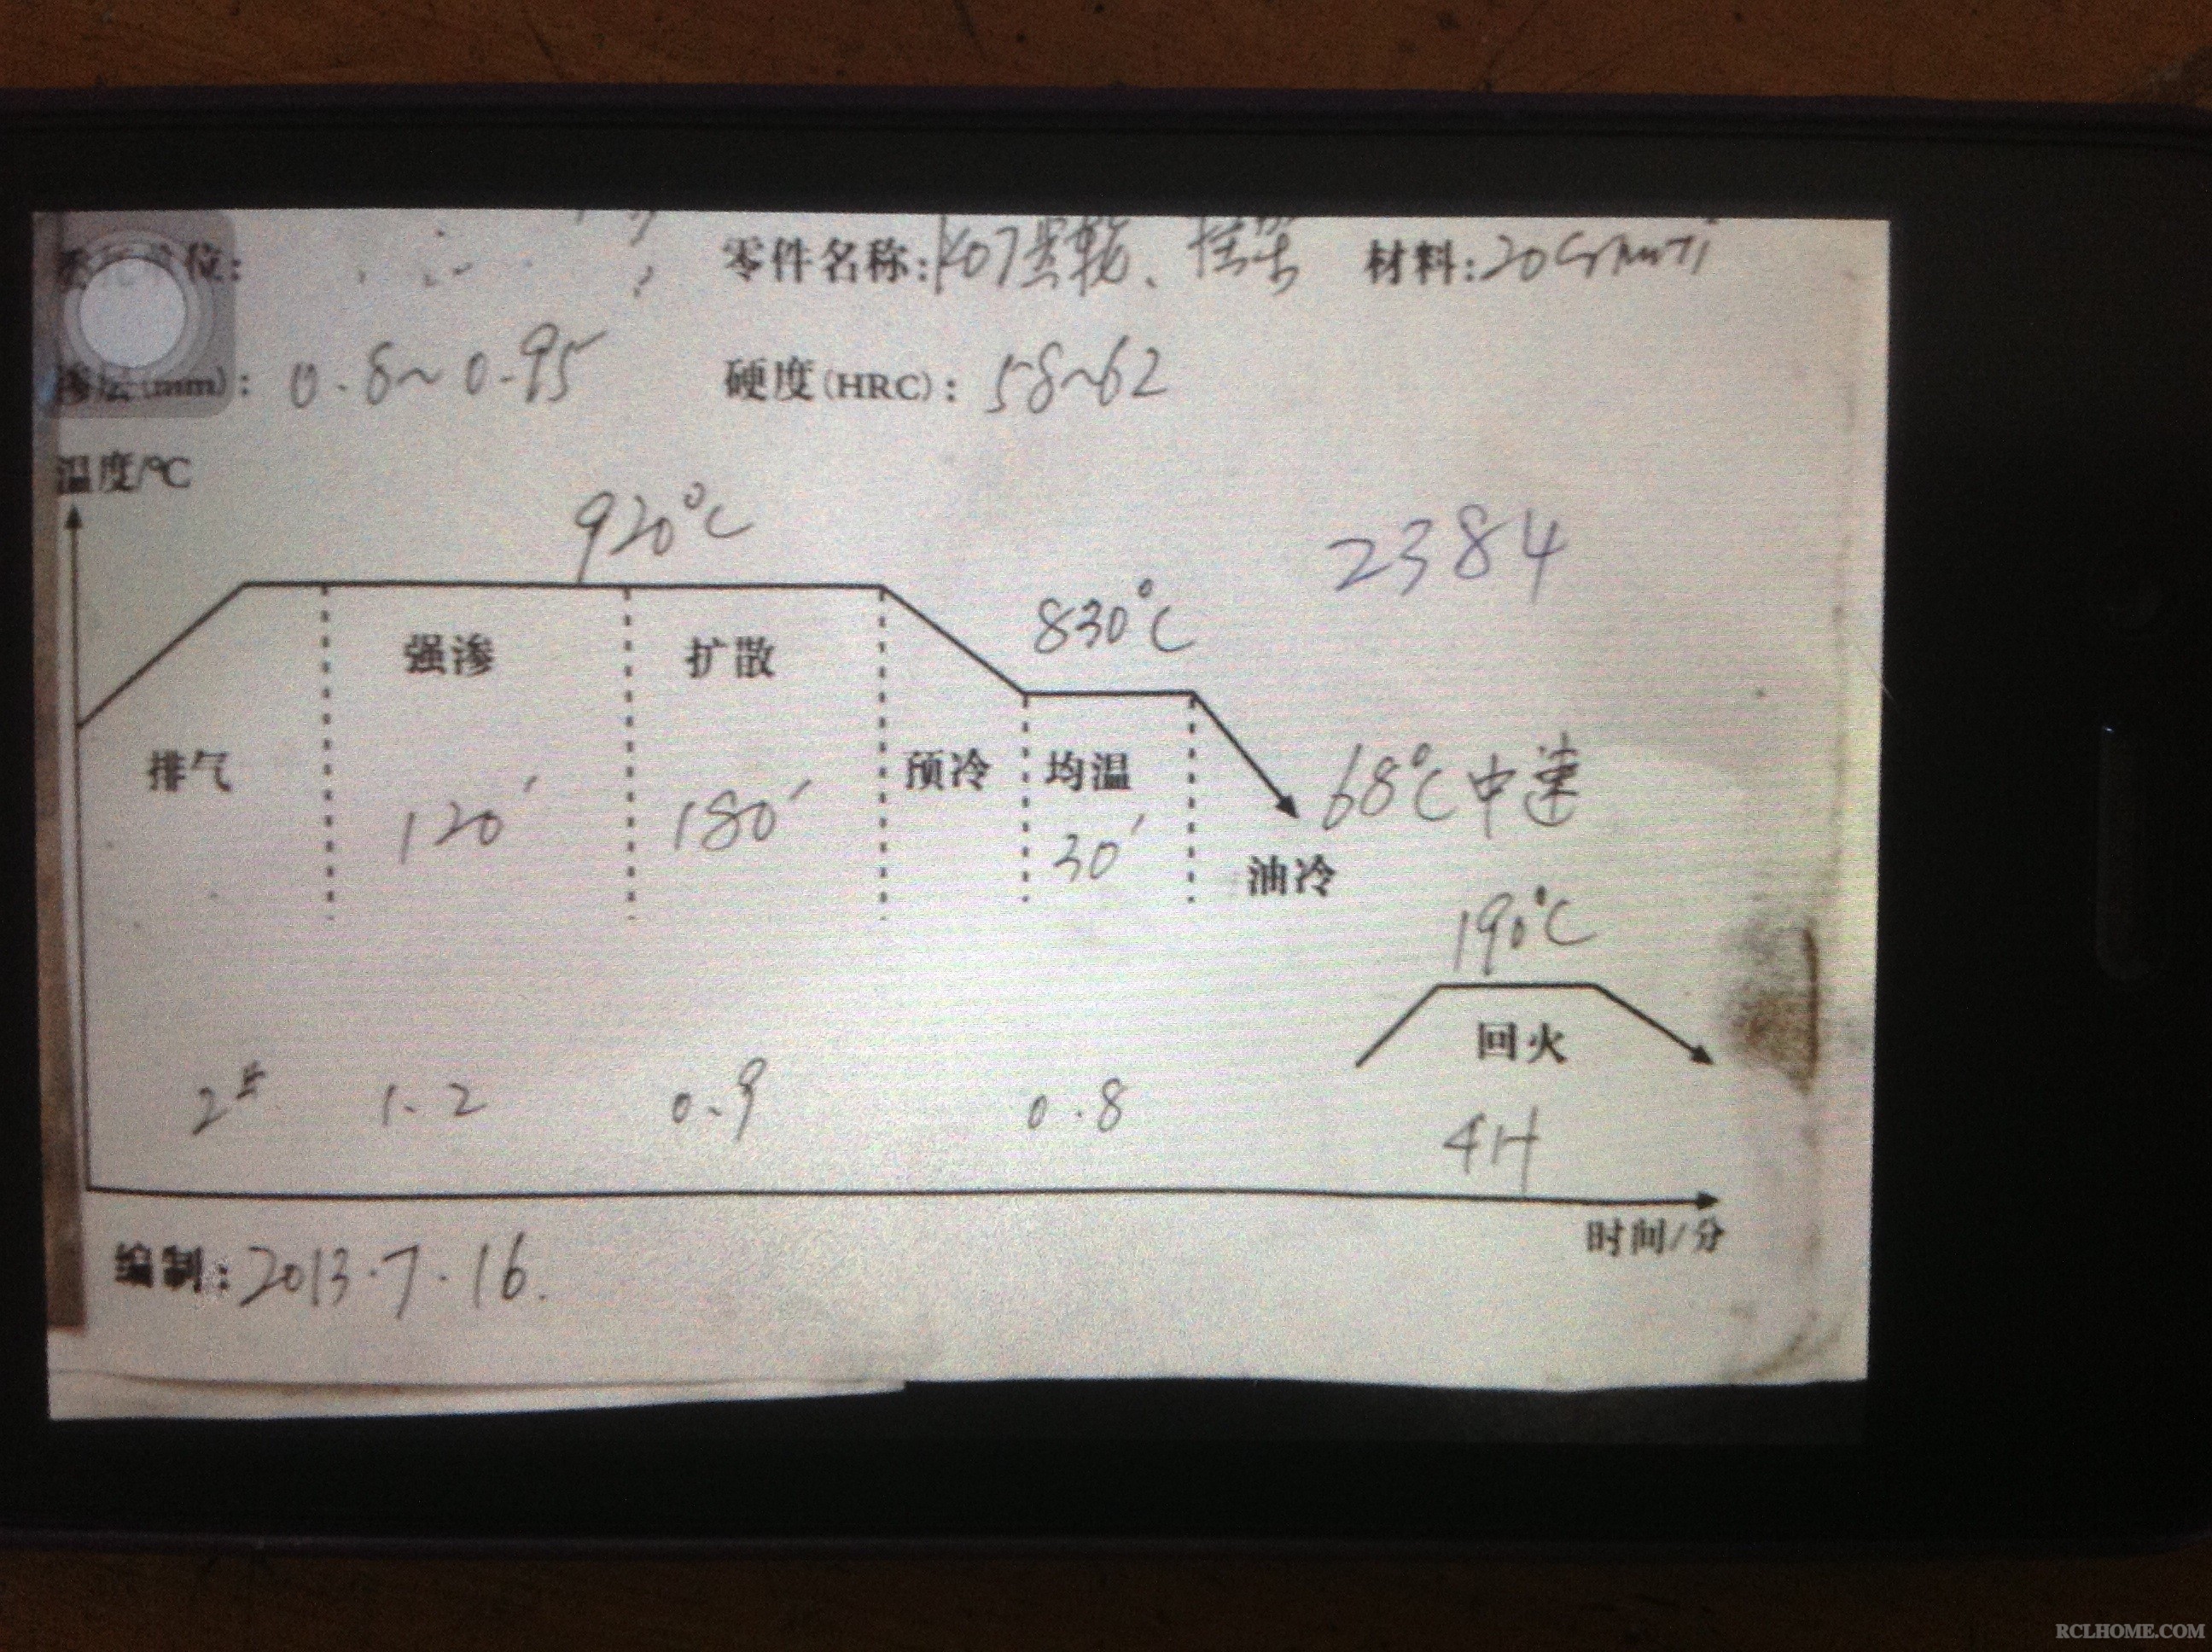 位:
零件名称: K07 材料: 20CrMnTi
渗层(mm): 0.8~0.95 硬度(HRC): 58~62
温度/℃
920°C
2384
830°C
强渗 扩散
排气 预冷 均温
68°C中速
120′ 180′ 30′
油冷
190°C
回火
2# 1.2 0.9 0.8
4H
时间/分
编制: 2013.7.16.
RCLHOME.COM